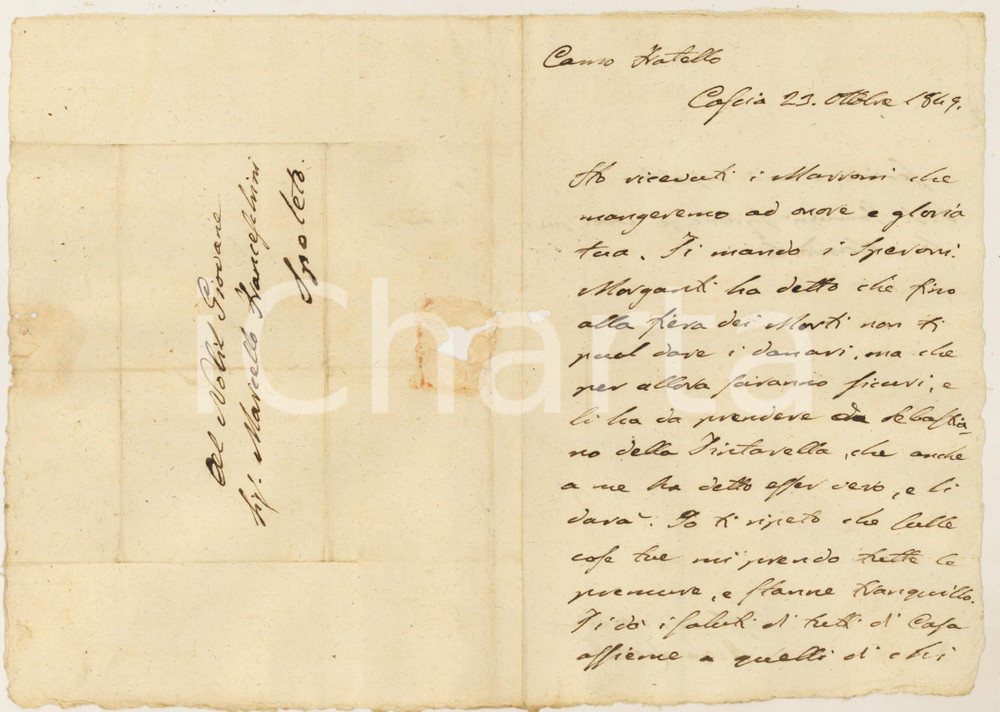 Al Nobil Giovane
Sig. Marcello Franceschini
Spoleto.
Caro Fratello
Cascia 23. Ottobre 1849.
Ho ricevuti i Marroni che
mangeremo ad onore e gloria
tua. Ti mando i Speroni.
Morganti ha detto che fino
alla fiera dei Morti non ti
puol dare i danari, ma che
per allora saranno sicuri, e
li ha da prendere da Sebastia-
no della Tintarella, che anche
a me ha detto esser vero, e li
darà. Io ti ripeto che sulle
cose tue mi prendo tutte le
premure, e stanne tranquillo.
Ti dò i saluti di tutti di Casa
assieme a quelli di chi
iCharta